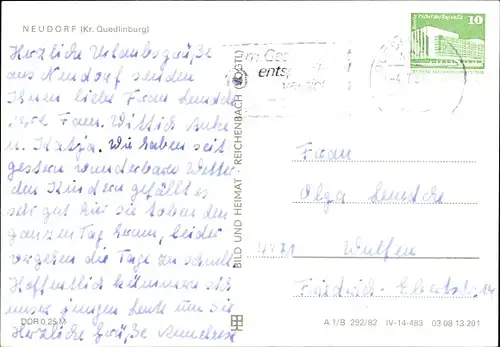 NEUDORF (Kr. Quedlinburg)
Herzliche Urlaubsgrüße
aus Neudorf senden
Ihnen liebe Frau
Fam. Wittich Anke
u. Katja. Wir haben seit
gestern wunderbares Wetter
den Kindern gefällt es
sehr gut hier sie toben den
ganzen Tag herum, leider
vergehen die Tage zu schnell
Hoffentlich kümmern sich
unser jungen Leute um Sie
Herzliche Grüße Annerose
DDR 0,25 M
BILD UND HEIMAT · REICHENBACH (VOGTL)
10
ents
Frau
Olga
Wulfen
Friedrich-Ebertstr. 14
A 1/B 292/82 IV-14-483 03 08 13 201